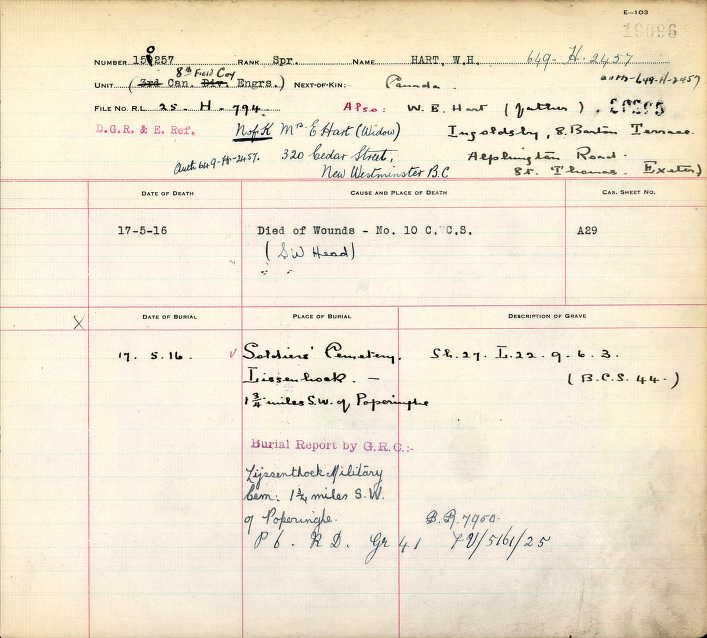 E-103
19096
NUMBER 150257 RANK Spr. NAME HART, W.H. 649-H-2457
8th Field Coy auth-649-H-2457
UNIT (3rd Can. Div. Engrs.) NEXT-OF-KIN: Canada.
FILE No. R.L. 25. H. 794. Also: W. E. Hart (father)
D.G.R. & E. Ref. N of K Mrs E Hart (Widow) Ingoldsby, 8. Barton Terrace.
Auth 649-H-2457. 320 Cedar Street, Alphington Road.
New Westminster B.C St. Thomas. Exeter)
DATE OF DEATH CAUSE AND PLACE OF DEATH CAS. SHEET NO.
17-5-16 Died of Wounds - No. 10 C.C.S. A29
(SW Head)
X DATE OF BURIAL PLACE OF BURIAL DESCRIPTION OF GRAVE
17. 5. 16. Soldiers' Cemetery. Sh. 27. L. 22. 9. 6. 3.
Lissenhoek. - (B.C.S. 44.)
1 3/4 miles S.W. of Poperinghe
Burial Report by G.R.C:-
Lijssenthoek Military
Cem: 1 3/4 miles S.W.
of Poperinghe. B.R. 7950.
P 6. R D. Gr 41